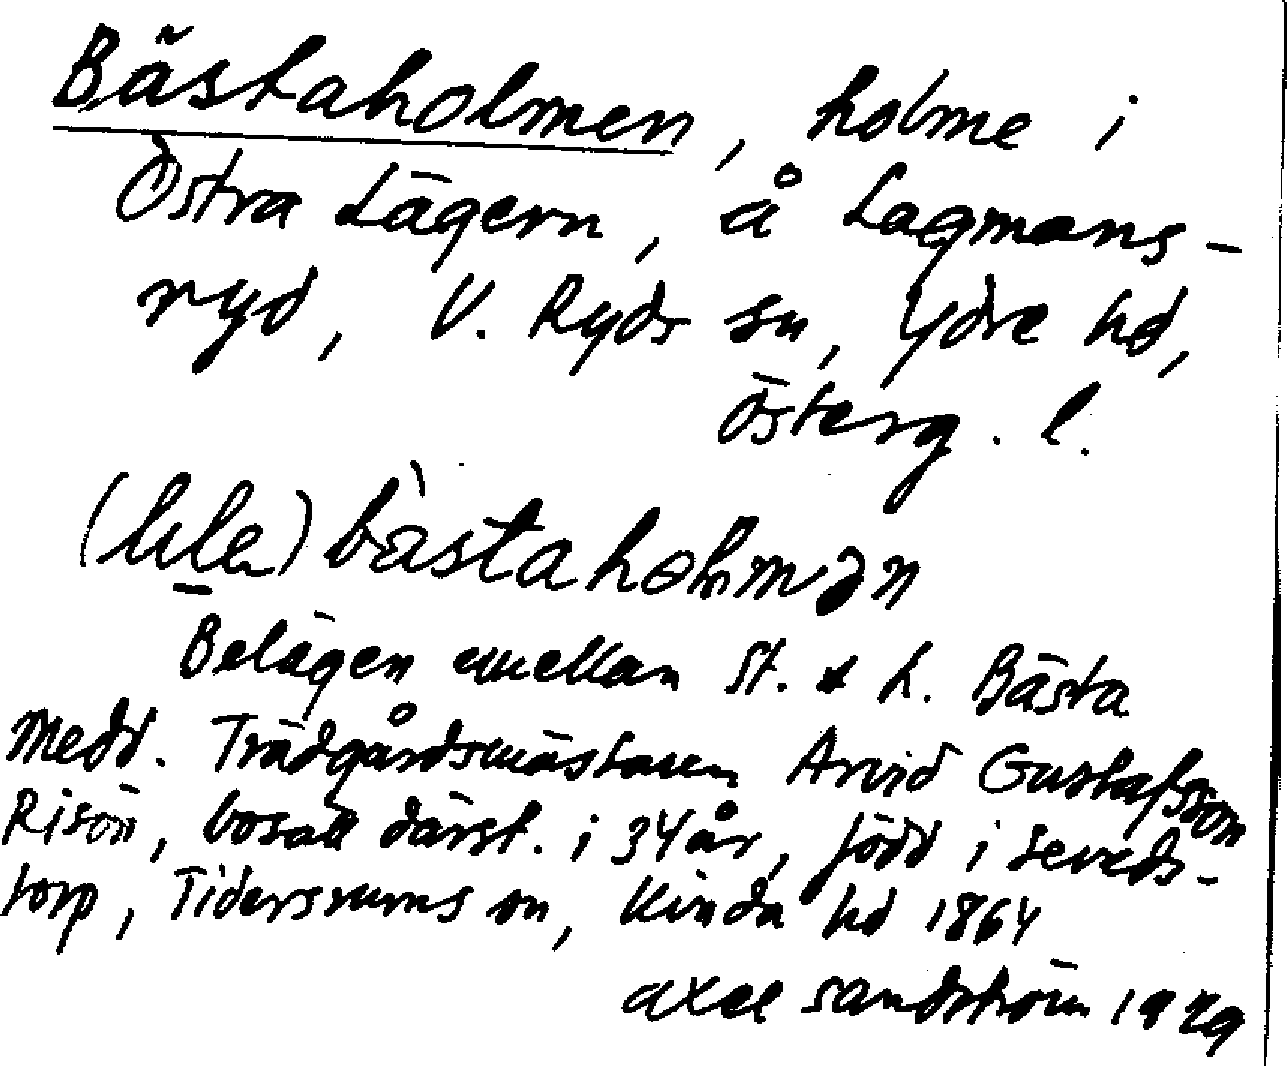 Bästaholmen, holme i
Östra Lägern, å Lagmans-
ryd, V. Ryds sn, Ydre hd,
Österg. l.
(lila) bàstahoLmən
Belägen mellan St. & L. Bästa
Medd. Trädgårdsmästaren Arvid Gustafsson
Risön, bosatt därst. i 34 år, född i Seveds-
torp, Tidersrums sn, Kinda hd 1864
Axel Sandström 1929